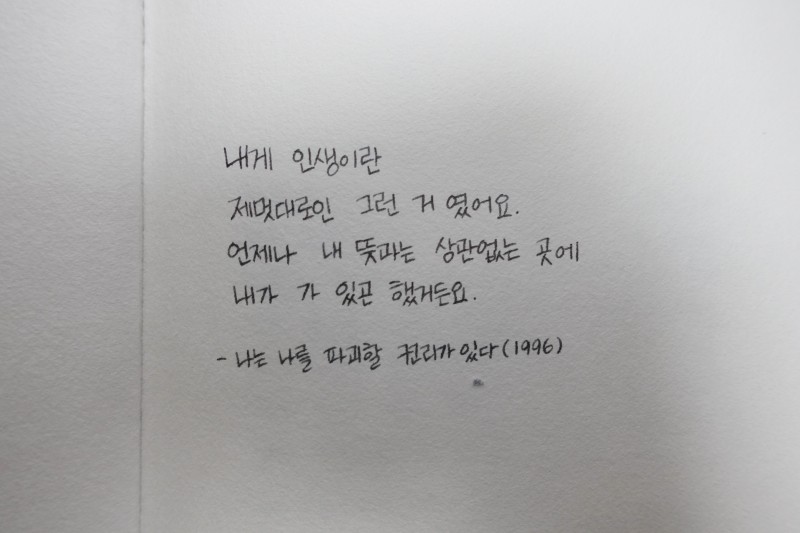 내게 인생이란
제멋대로인 그런 거 였어요.
언제나 내 뜻과는 상관없는 곳에
내가 가 있곤 했거든요.
- 나는 나를 파괴할 권리가 있다 (1996)